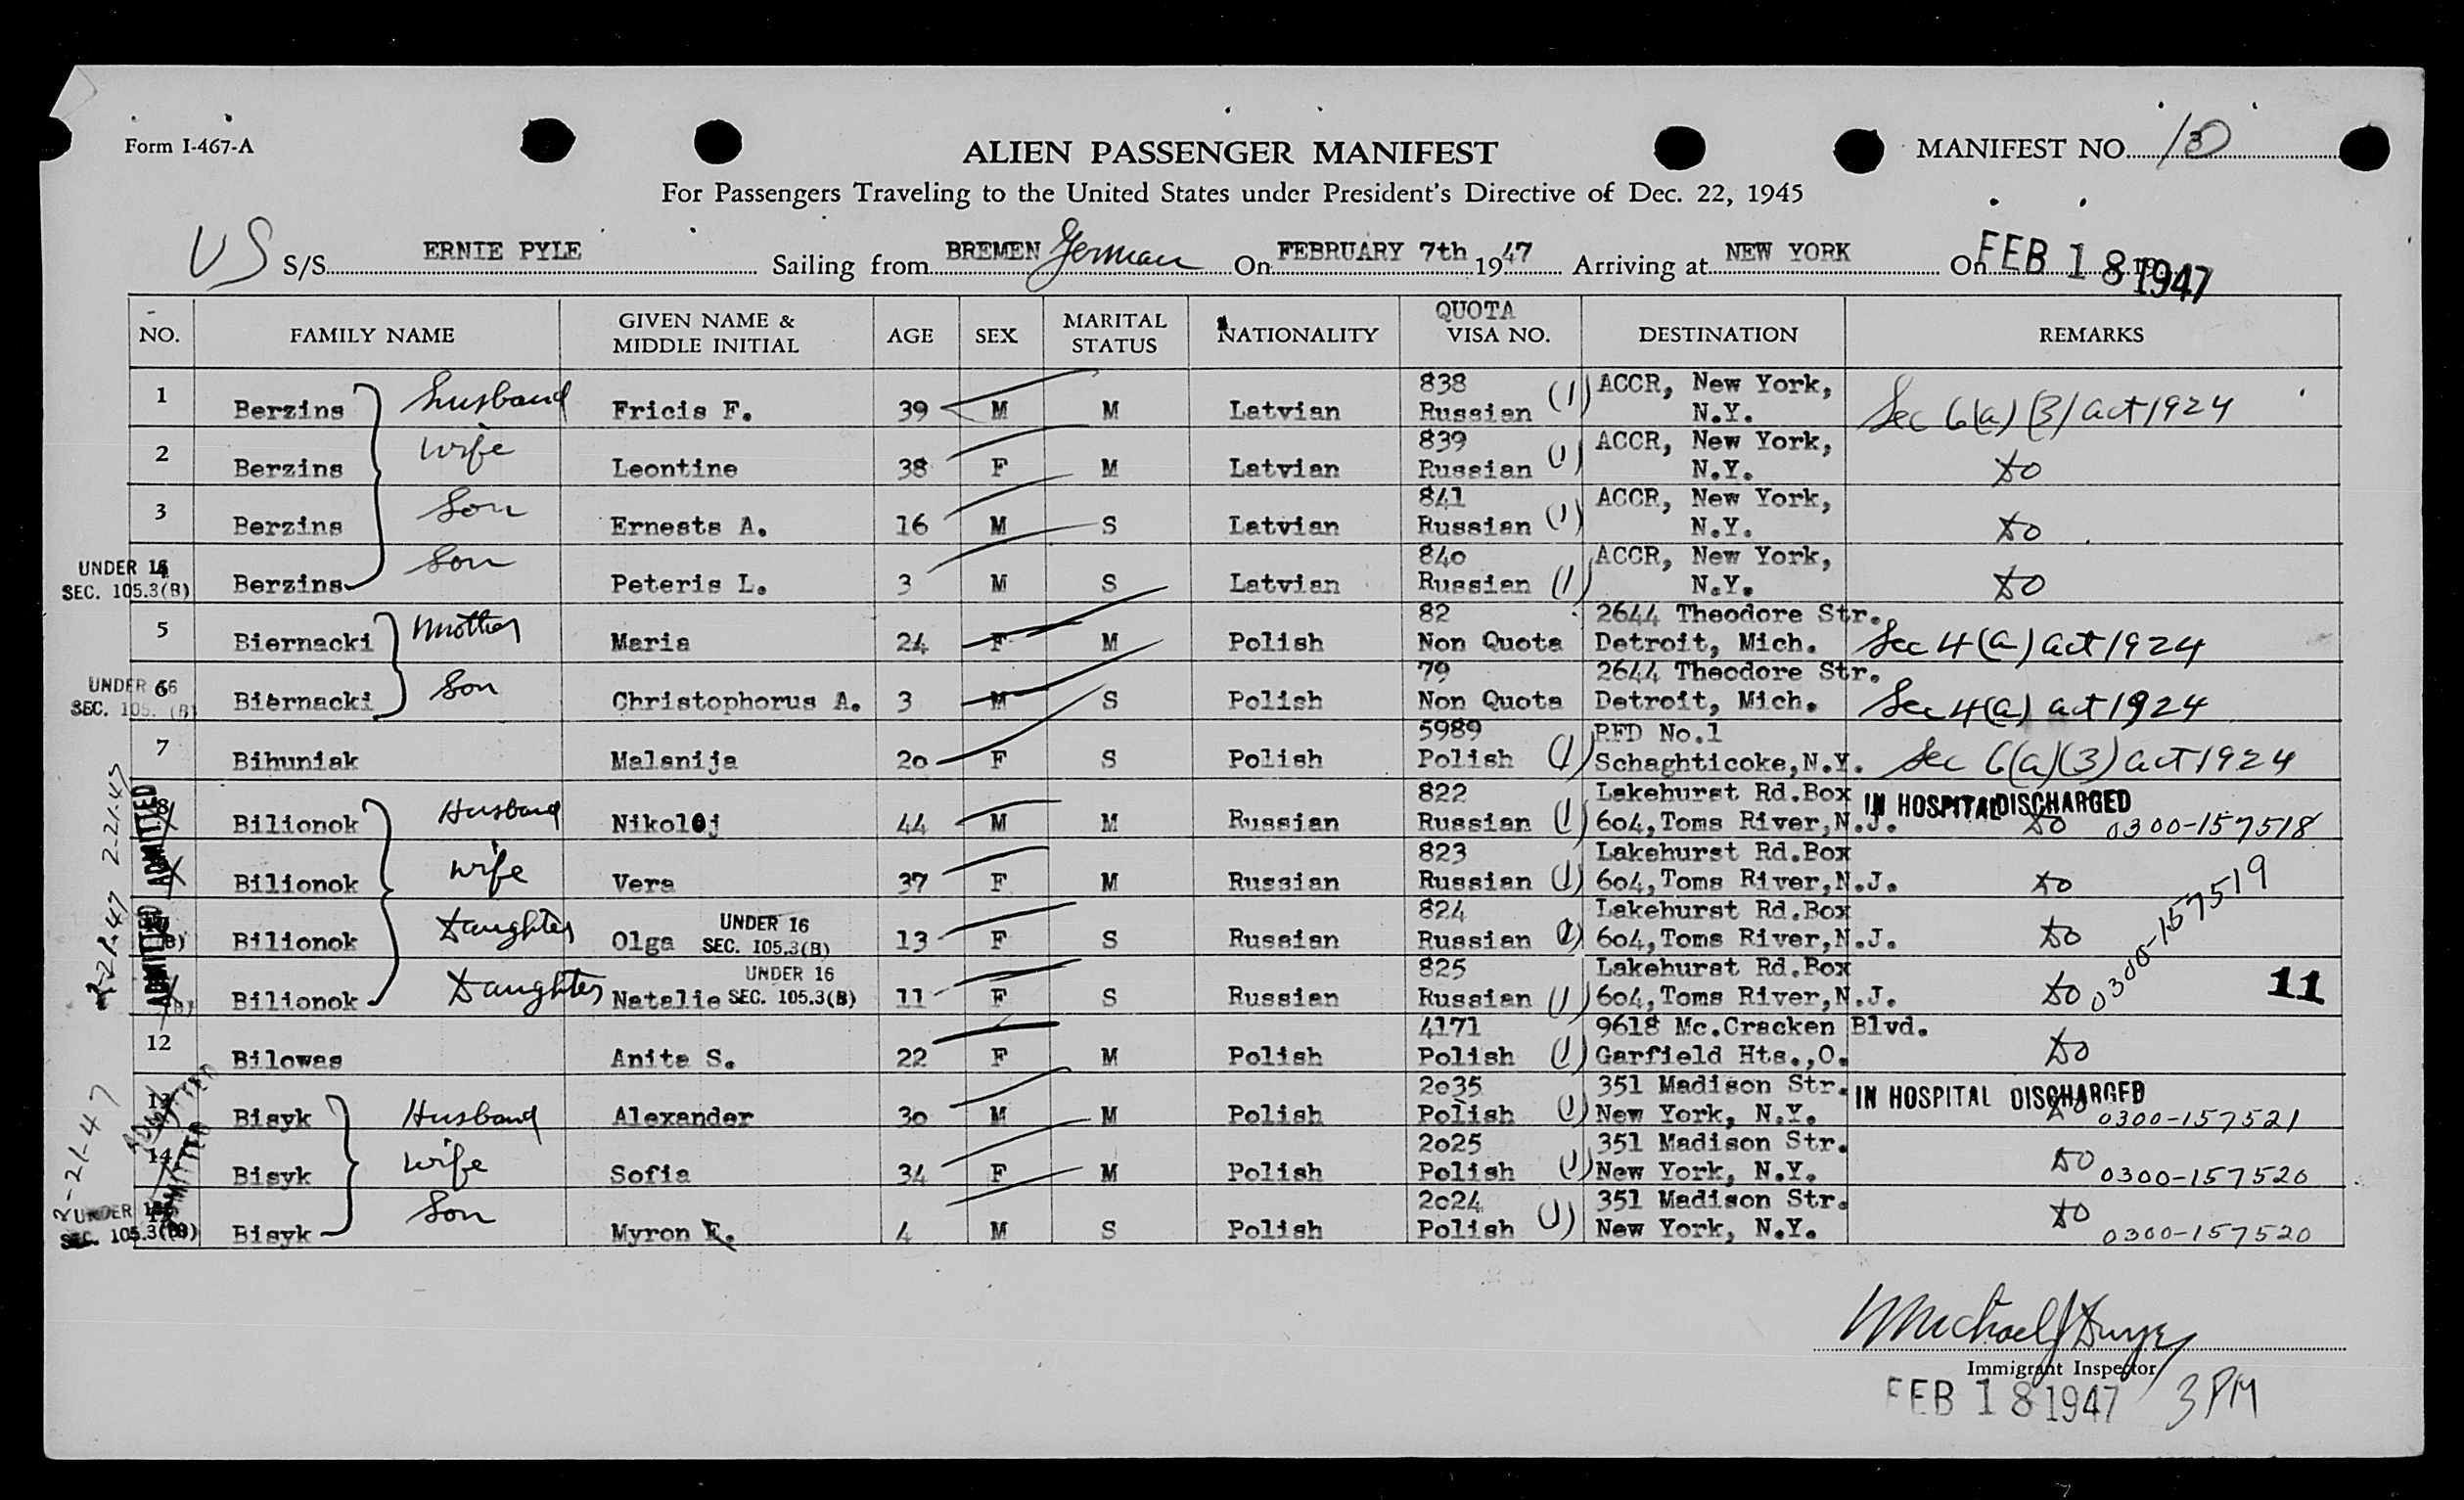 Form I-467-A
ALIEN PASSENGER MANIFEST
MANIFEST NO. 13
For Passengers Traveling to the United States under President's Directive of Dec. 22, 1945
US S/S ERNIE PYLE Sailing from BREMEN German On FEBRUARY 7th 1947 Arriving at NEW YORK On FEB 18 1947
NO. FAMILY NAME GIVEN NAME & MIDDLE INITIAL AGE SEX MARITAL STATUS NATIONALITY QUOTA VISA NO. DESTINATION REMARKS
1 Berzins husband Fricis F. 39 M M Latvian 838 Russian (1) ACCR, New York, N.Y. Sec 6(a)(3) act 1924
2 Berzins wife Leontine 38 F M Latvian 839 Russian (1) ACCR, New York, N.Y. Do
3 Berzins Son Ernests A. 16 M S Latvian 841 Russian (1) ACCR, New York, N.Y. Do
UNDER 16 SEC. 105.3(B) 4 Berzins Son Peteris L. 3 M S Latvian 840 Russian (1) ACCR, New York, N.Y. Do
5 Biernacki Mother Maria 24 F M Polish 82 Non Quota 2644 Theodore Str. Detroit, Mich. Sec 4(a) act 1924
UNDER 16 SEC. 105. (B) 6 Biernacki Son Christophorus A. 3 M S Polish 79 Non Quota 2644 Theodore Str. Detroit, Mich. Sec 4(a) act 1924
7 Bihuniak Malanija 20 F S Polish 5989 Polish (1) RFD No.1 Schaghticoke,N.Y. Sec 6(a)(3) act 1924
2-21-47 ADMITTED 8 Bilionok Husband Nikolaj 44 M M Russian 822 Russian (1) Lakehurst Rd.Box 604,Toms River,N.J. IN HOSPITAL DISCHARGED Do 0300-157518
Bilionok Wife Vera 37 F M Russian 823 Russian (1) Lakehurst Rd.Box 604,Toms River,N.J. Do
2-21-47 ADMITTED (B) Bilionok Daughter Olga UNDER 16 SEC. 105.3(B) 13 F S Russian 824 Russian (1) Lakehurst Rd.Box 604,Toms River,N.J. Do 0300-157519
(B) Bilionok Daughter Natalie UNDER 16 SEC. 105.3(B) 11 F S Russian 825 Russian (1) Lakehurst Rd.Box 604,Toms River,N.J. Do 11
12 Bilowas Anita S. 22 F M Polish 4171 Polish (1) 9618 Mc.Cracken Blvd. Garfield Hts.,O. Do
ADMITTED 13 Bisyk Husband Alexander 30 M M Polish 2035 Polish (1) 351 Madison Str. New York, N.Y. IN HOSPITAL DISCHARGED Do 0300-157521
2-21-47 ADMITTED 14 Bisyk Wife Sofia 34 F M Polish 2025 Polish (1) 351 Madison Str. New York, N.Y. Do 0300-157520
UNDER 16 SEC. 105.3(B) Bisyk Son Myron E. 4 M S Polish 2024 Polish (1) 351 Madison Str. New York, N.Y. Do 0300-157520
Michael J Dwyer
Immigrant Inspector
FEB 18 1947 3 PM